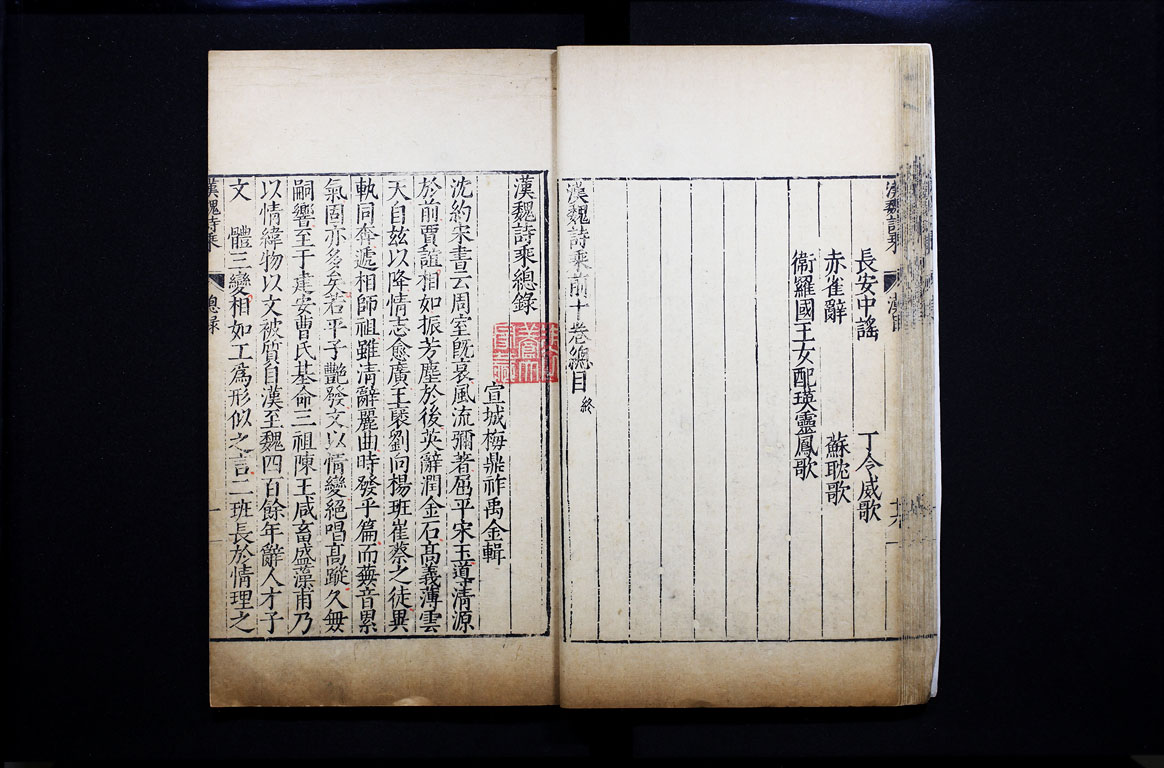 漢魏詩乘
長安中謠 丁令威歌
赤雀辭 蘇耽歌
衞羅國王女配瑛靈鳳歌
漢魏詩乘前十卷總目 終
漢魏詩乘總錄
宣城梅鼎祚禹金輯
沈約宋書云周室旣衰風流彌著屈平宋玉導清源
於前賈誼相如振芳塵於後英辭潤金石高義薄雲
天自玆以降情志愈廣王褒劉向揚班崔蔡之徒異
軌同奔遞相師祖雖清辭麗曲時發乎篇而蕪音累
氣固亦多矣若平子艷發文以情變絕唱高蹤久無
嗣響至于建安曹氏基命三祖陳王咸畜盛藻甫乃
以情緯物以文被質自漢至魏四百餘年辭人才子
文 體三變相如工爲形似之言二班長於情理之
漢魏詩乘 總錄 一